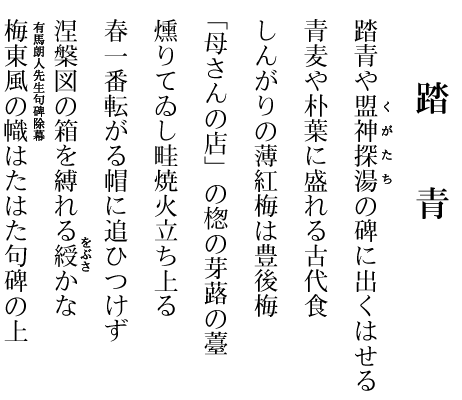 踏青
踏青や盟神探湯の碑に出くはせる
くがたち
青麦や朴葉に盛れる古代食
しんがりの薄紅梅は豊後梅
「母さんの店」の楤の芽蕗の薹
燻りてゐし畦焼火立ち上る
春一番転がる帽に追ひつけず
涅槃図の箱を縛れる綬かな
をぶさ
有馬朗人先生句碑除幕
梅東風の幟はたはた句碑の上